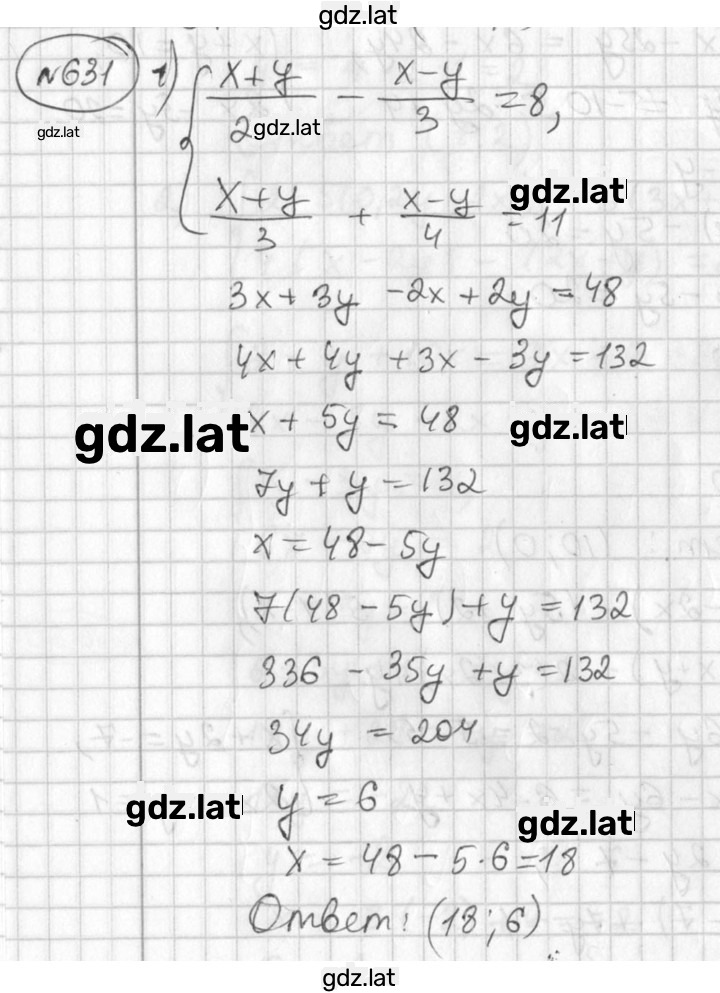 gdz.lat
№631 1) { (x+y)/2 - (x-y)/3 = 8,
gdz.lat gdz.lat
(x+y)/3 + (x-y)/4 = 11
gdz.lat
3x + 3y - 2x + 2y = 48
4x + 4y + 3x - 3y = 132
x + 5y = 48
gdz.lat gdz.lat
7y + y = 132
x = 48 - 5y
7(48 - 5y) + y = 132
336 - 35y + y = 132
34y = 204
y = 6
gdz.lat gdz.lat
x = 48 - 5·6 = 18
Ответ: (18; 6)
gdz.lat